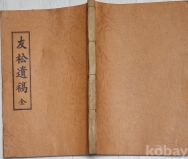 友松遺稿 全
kobay